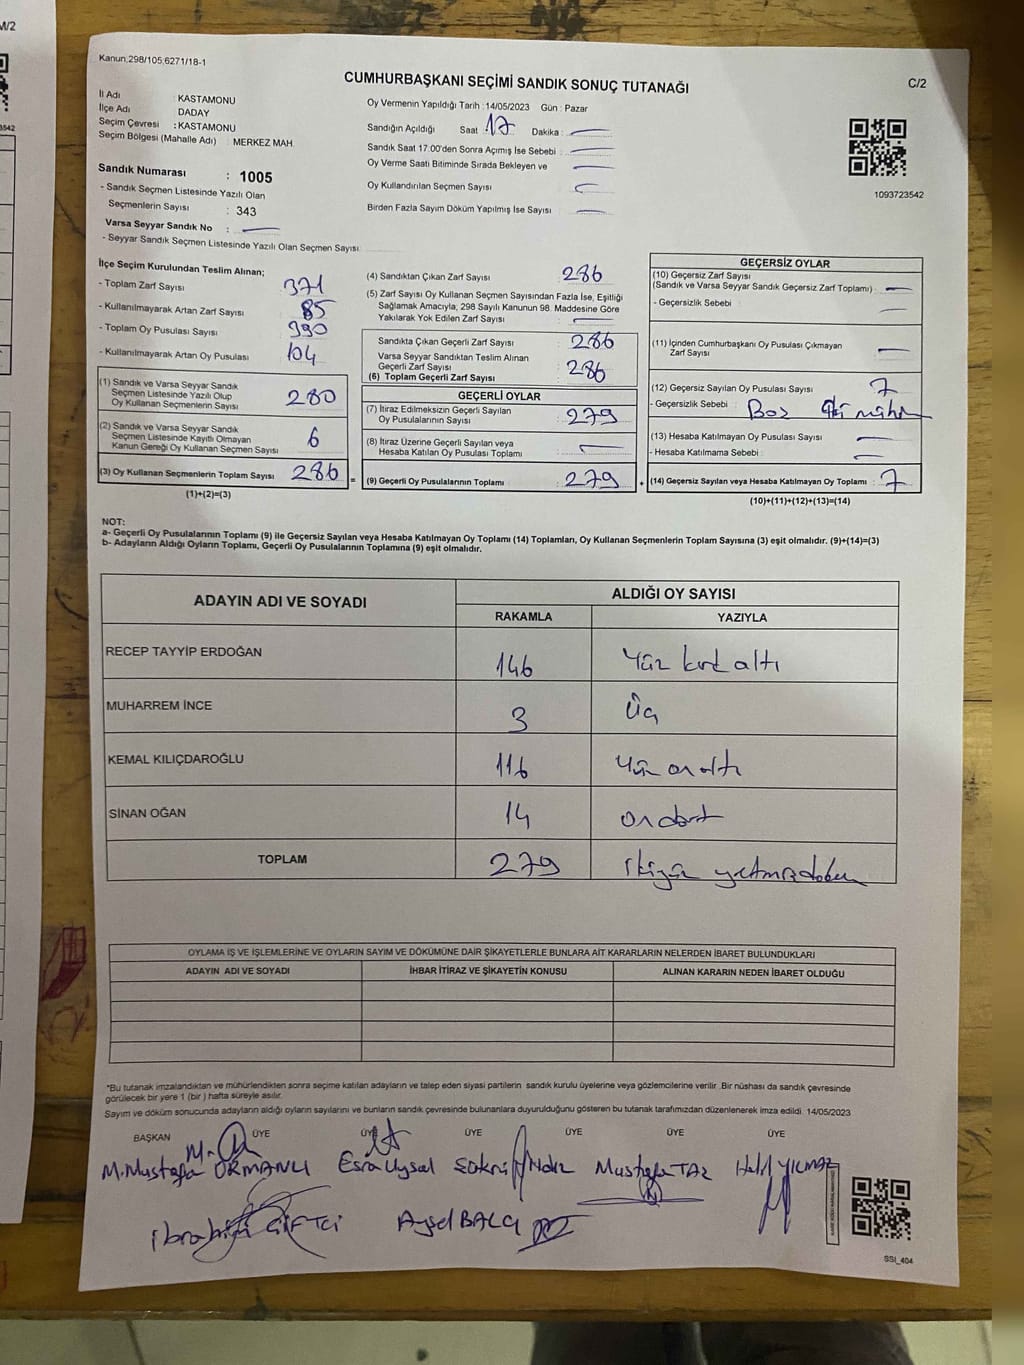 M/2
3542
Kanun,298/105,6271/18-1
CUMHURBAŞKANI SEÇİMİ SANDIK SONUÇ TUTANAĞI
C/2
İl Adı : KASTAMONU
İlçe Adı : DADAY
Seçim Çevresi : KASTAMONU
Seçim Bölgesi (Mahalle Adı) : MERKEZ MAH.
Sandık Numarası : 1005
- Sandık Seçmen Listesinde Yazılı Olan
Seçmenlerin Sayısı : 343
Varsa Seyyar Sandık No :
- Seyyar Sandık Seçmen Listesinde Yazılı Olan Seçmen Sayısı:
Oy Vermenin Yapıldığı Tarih :14/05/2023 Gün : Pazar
Sandığın Açıldığı Saat : 17 Dakika :
Sandık Saat 17:00'den Sonra Açımış İse Sebebi :
Oy Verme Saati Bitiminde Sırada Bekleyen ve :
Oy Kullandırılan Seçmen Sayısı
Birden Fazla Sayım Döküm Yapılmış İse Sayısı :
1093723542
İlçe Seçim Kurulundan Teslim Alınan;
- Toplam Zarf Sayısı : 371
- Kullanılmayarak Artan Zarf Sayısı : 85
- Toplam Oy Pusulası Sayısı : 390
- Kullanılmayarak Artan Oy Pusulası : 104
(1) Sandık ve Varsa Seyyar Sandık
Seçmen Listesinde Yazılı Olup
Oy Kullanan Seçmenlerin Sayısı : 280
(2) Sandık ve Varsa Seyyar Sandık
Seçmen Listesinde Kayıtlı Olmayan
Kanun Gereği Oy Kullanan Seçmen Sayısı : 6
(3) Oy Kullanan Seçmenlerin Toplam Sayısı : 286
(1)+(2)=(3)
=
(4) Sandıktan Çıkan Zarf Sayısı : 286
(5) Zarf Sayısı Oy Kullanan Seçmen Sayısından Fazla İse, Eşitliği
Sağlamak Amacıyla, 298 Sayılı Kanunun 98. Maddesine Göre
Yakılarak Yok Edilen Zarf Sayısı :
Sandıkta Çıkan Geçerli Zarf Sayısı : 286
Varsa Seyyar Sandıktan Teslim Alınan
Geçerli Zarf Sayısı : 286
(6) Toplam Geçerli Zarf Sayısı
GEÇERLİ OYLAR
(7) İtiraz Edilmeksizin Geçerli Sayılan
Oy Pusulalarının Sayısı : 279
(8) İtiraz Üzerine Geçerli Sayılan veya
Hesaba Katılan Oy Pusulası Toplamı :
(9) Geçerli Oy Pusulalarının Toplamı : 279
+
GEÇERSİZ OYLAR
(10) Geçersiz Zarf Sayısı
(Sandık ve Varsa Seyyar Sandık Geçersiz Zarf Toplamı) :
- Geçersizlik Sebebi :
(11) İçinden Cumhurbaşkanı Oy Pusulası Çıkmayan
Zarf Sayısı :
(12) Geçersiz Sayılan Oy Pusulası Sayısı : 7
- Geçersizlik Sebebi : Boş
(13) Hesaba Katılmayan Oy Pusulası Sayısı :
- Hesaba Katılmama Sebebi :
(14) Geçersiz Sayılan veya Hesaba Katılmayan Oy Toplamı : 7
(10)+(11)+(12)+(13)=(14)
NOT:
a- Geçerli Oy Pusulalarının Toplamı (9) ile Geçersiz Sayılan veya Hesaba Katılmayan Oy Toplamı (14) Toplamları, Oy Kullanan Seçmenlerin Toplam Sayısına (3) eşit olmalıdır. (9)+(14)=(3)
b- Adayların Aldığı Oyların Toplamı, Geçerli Oy Pusulalarının Toplamına (9) eşit olmalıdır.
ADAYIN ADI VE SOYADI ALDIĞI OY SAYISI
RAKAMLA YAZIYLA
RECEP TAYYİP ERDOĞAN 146 Yüz kırk altı
MUHARREM İNCE 3 Üç
KEMAL KILIÇDAROĞLU 116 Yüz on altı
SİNAN OĞAN 14 on dört
TOPLAM 279 ikiyüz yetmiş dokuz
OYLAMA İŞ VE İŞLEMLERİNE VE OYLARIN SAYIM VE DÖKÜMÜNE DAİR ŞİKAYETLERLE BUNLARA AİT KARARLARIN NELERDEN İBARET BULUNDUKLARI
ADAYIN ADI VE SOYADI İHBAR İTİRAZ VE ŞİKAYETİN KONUSU ALINAN KARARIN NEDEN İBARET OLDUĞU
*Bu tutanak imzalandıktan ve mühürlendikten sonra seçime katılan adayların ve talep eden siyasi partilerin sandık kurulu üyelerine veya gözlemcilerine verilir .Bir nüshası da sandık çevresinde
görülecek bir yere 1 (bir ) hafta süreyle asılır.
Sayım ve döküm sonucunda adayların aldığı oyların sayılarını ve bunların sandık çevresinde bulunanlara duyurulduğunu gösteren bu tutanak tarafımızdan düzenlenerek imza edildi. 14/05/2023
BAŞKAN ÜYE ÜYE ÜYE ÜYE ÜYE ÜYE
M.Mustafa ORMANLI Esra Uysal Mustafa TAZ Halil YILMAZ
İbrahim ÇİFTCİ Aysel BALCI
SSI_404